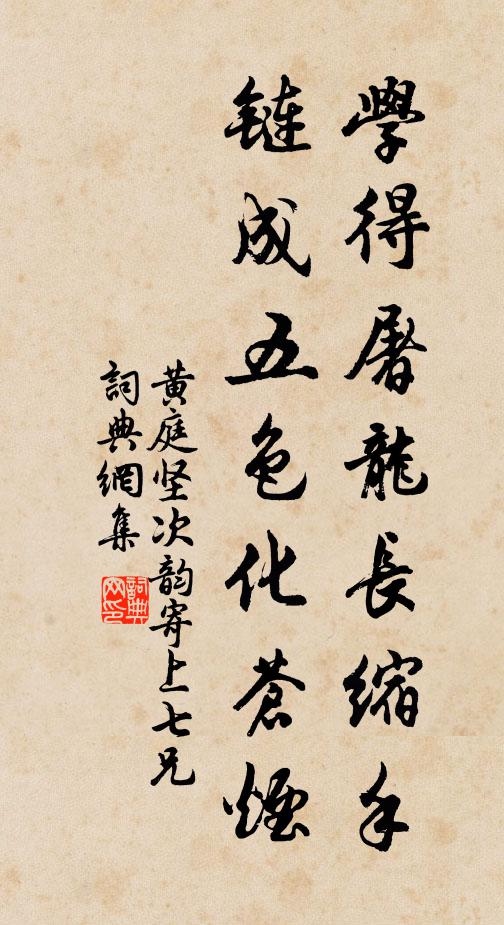 學得屠龍長縮手
鏈成五色化蒼煙
黄庭坚次韵寄上七兄
詞典網集
詞典网印